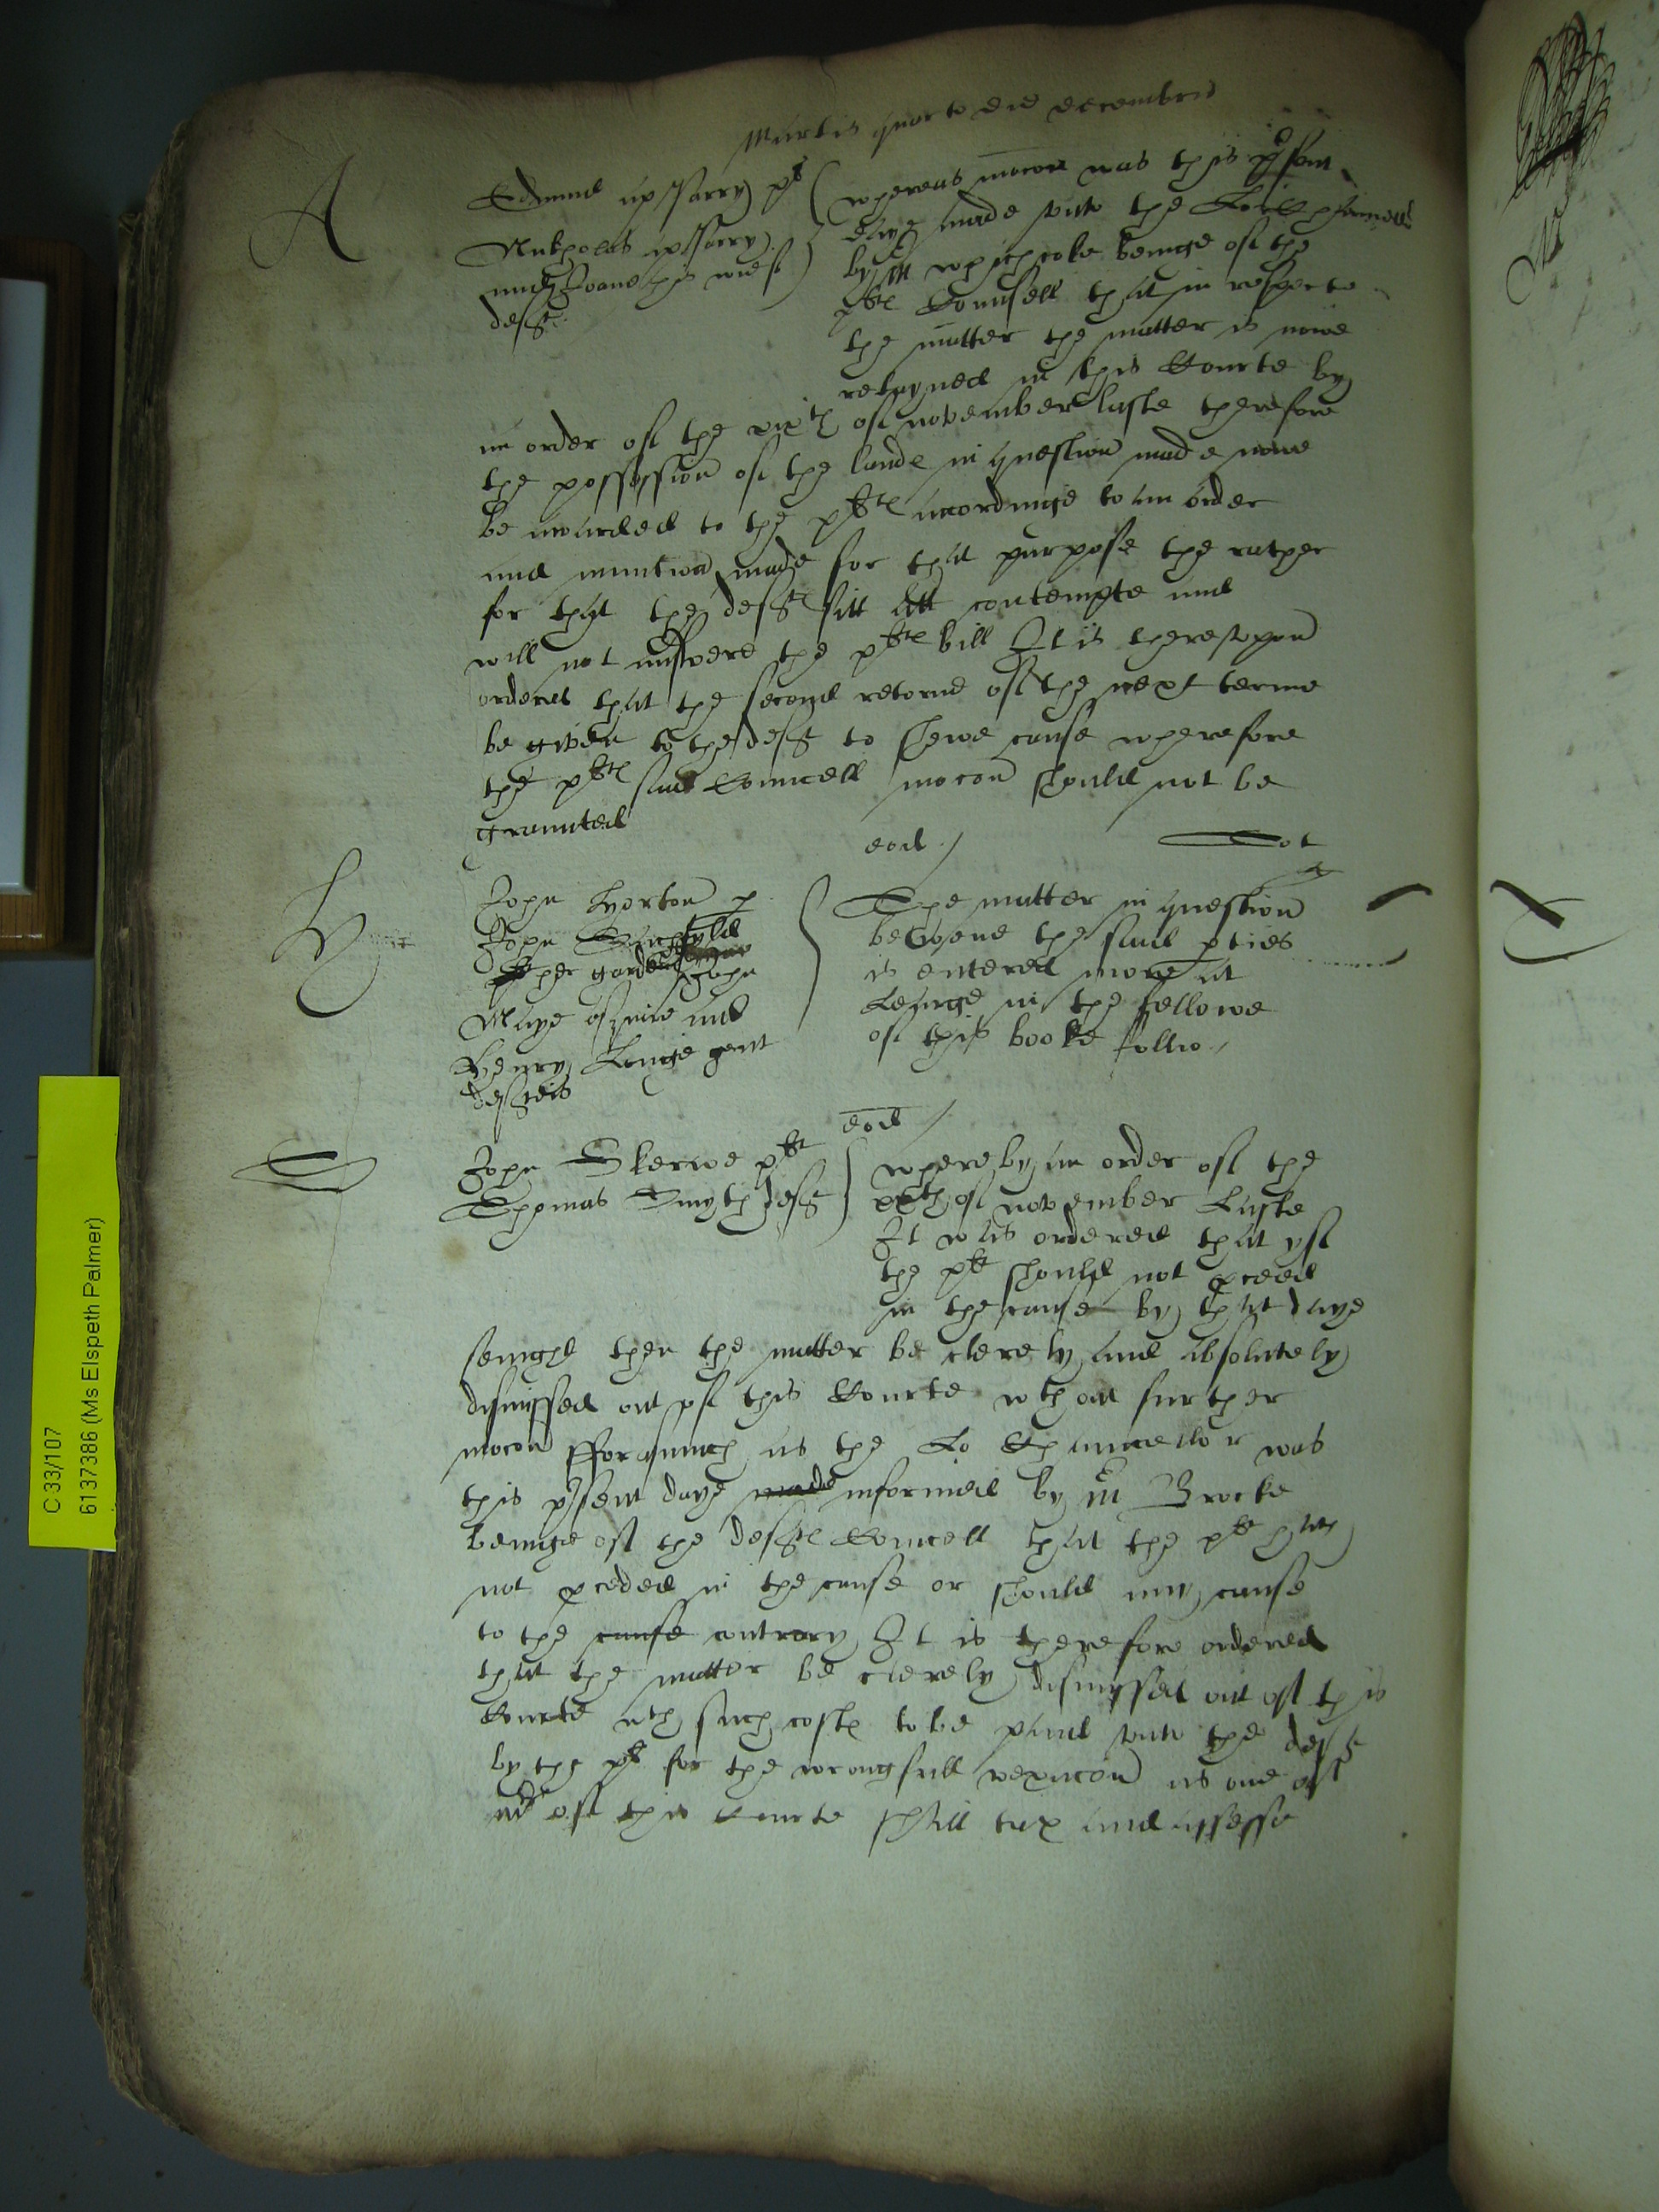 Martis quarto die decembris
A
Edmund ap harry plt
Nicholas ap harry
and Joane his wief
deftes
whereas mocon was this p'sent
daye made unto the Lord
by Mr whichcoke beinge of the
pltes Counsell that in respecte
the matter the matter is nowe
retayned in this Courte by
an order of the xixth of november laste therefore
the possession of the landes in question made nowe
be awarded to the pltes accordinge to an order
and made for that purpose the rather
for that the deftes sitt att contempte and
will not aunswere the pltes bill It is thereupon
ordered that the second retorne of the next terme
be given to the deft to shewe cause wherefore
the pltes said Councell mocon should not be
graunted
eod /
John Horton p
John
gardener John
Maye and
Henry Longe gent
deftes
The matter in question
betwene the said pties
is entered more at
Learge in the fellowe
of this booke follio /
eod /
John Skerne plt
Thomas Smyth deft
whereby an order of the
xxth of november Laste
It was ordered that yf
the plt should not pceed
in the cause by that daye
then the matter be clerely and absolutely
dismissed out of this Courte wthout further
mocon Fforasmuch as the Lo Chauncellor was
this p'sent daye made informed by Mr Brocke
beinge of the deftes Councell that the plt hath
not pceded in the cause or should any cause
to the cause contrary It is therefore ordered
that the matter be clerely dismyssed out of this
Courte wth such costes to be paied unto the deft
by the plt for the wrongfull vexacon as one of
mrs of this Courte shall tax and assesse
C 33/107
6137386 (Ms Elspeth Palmer)